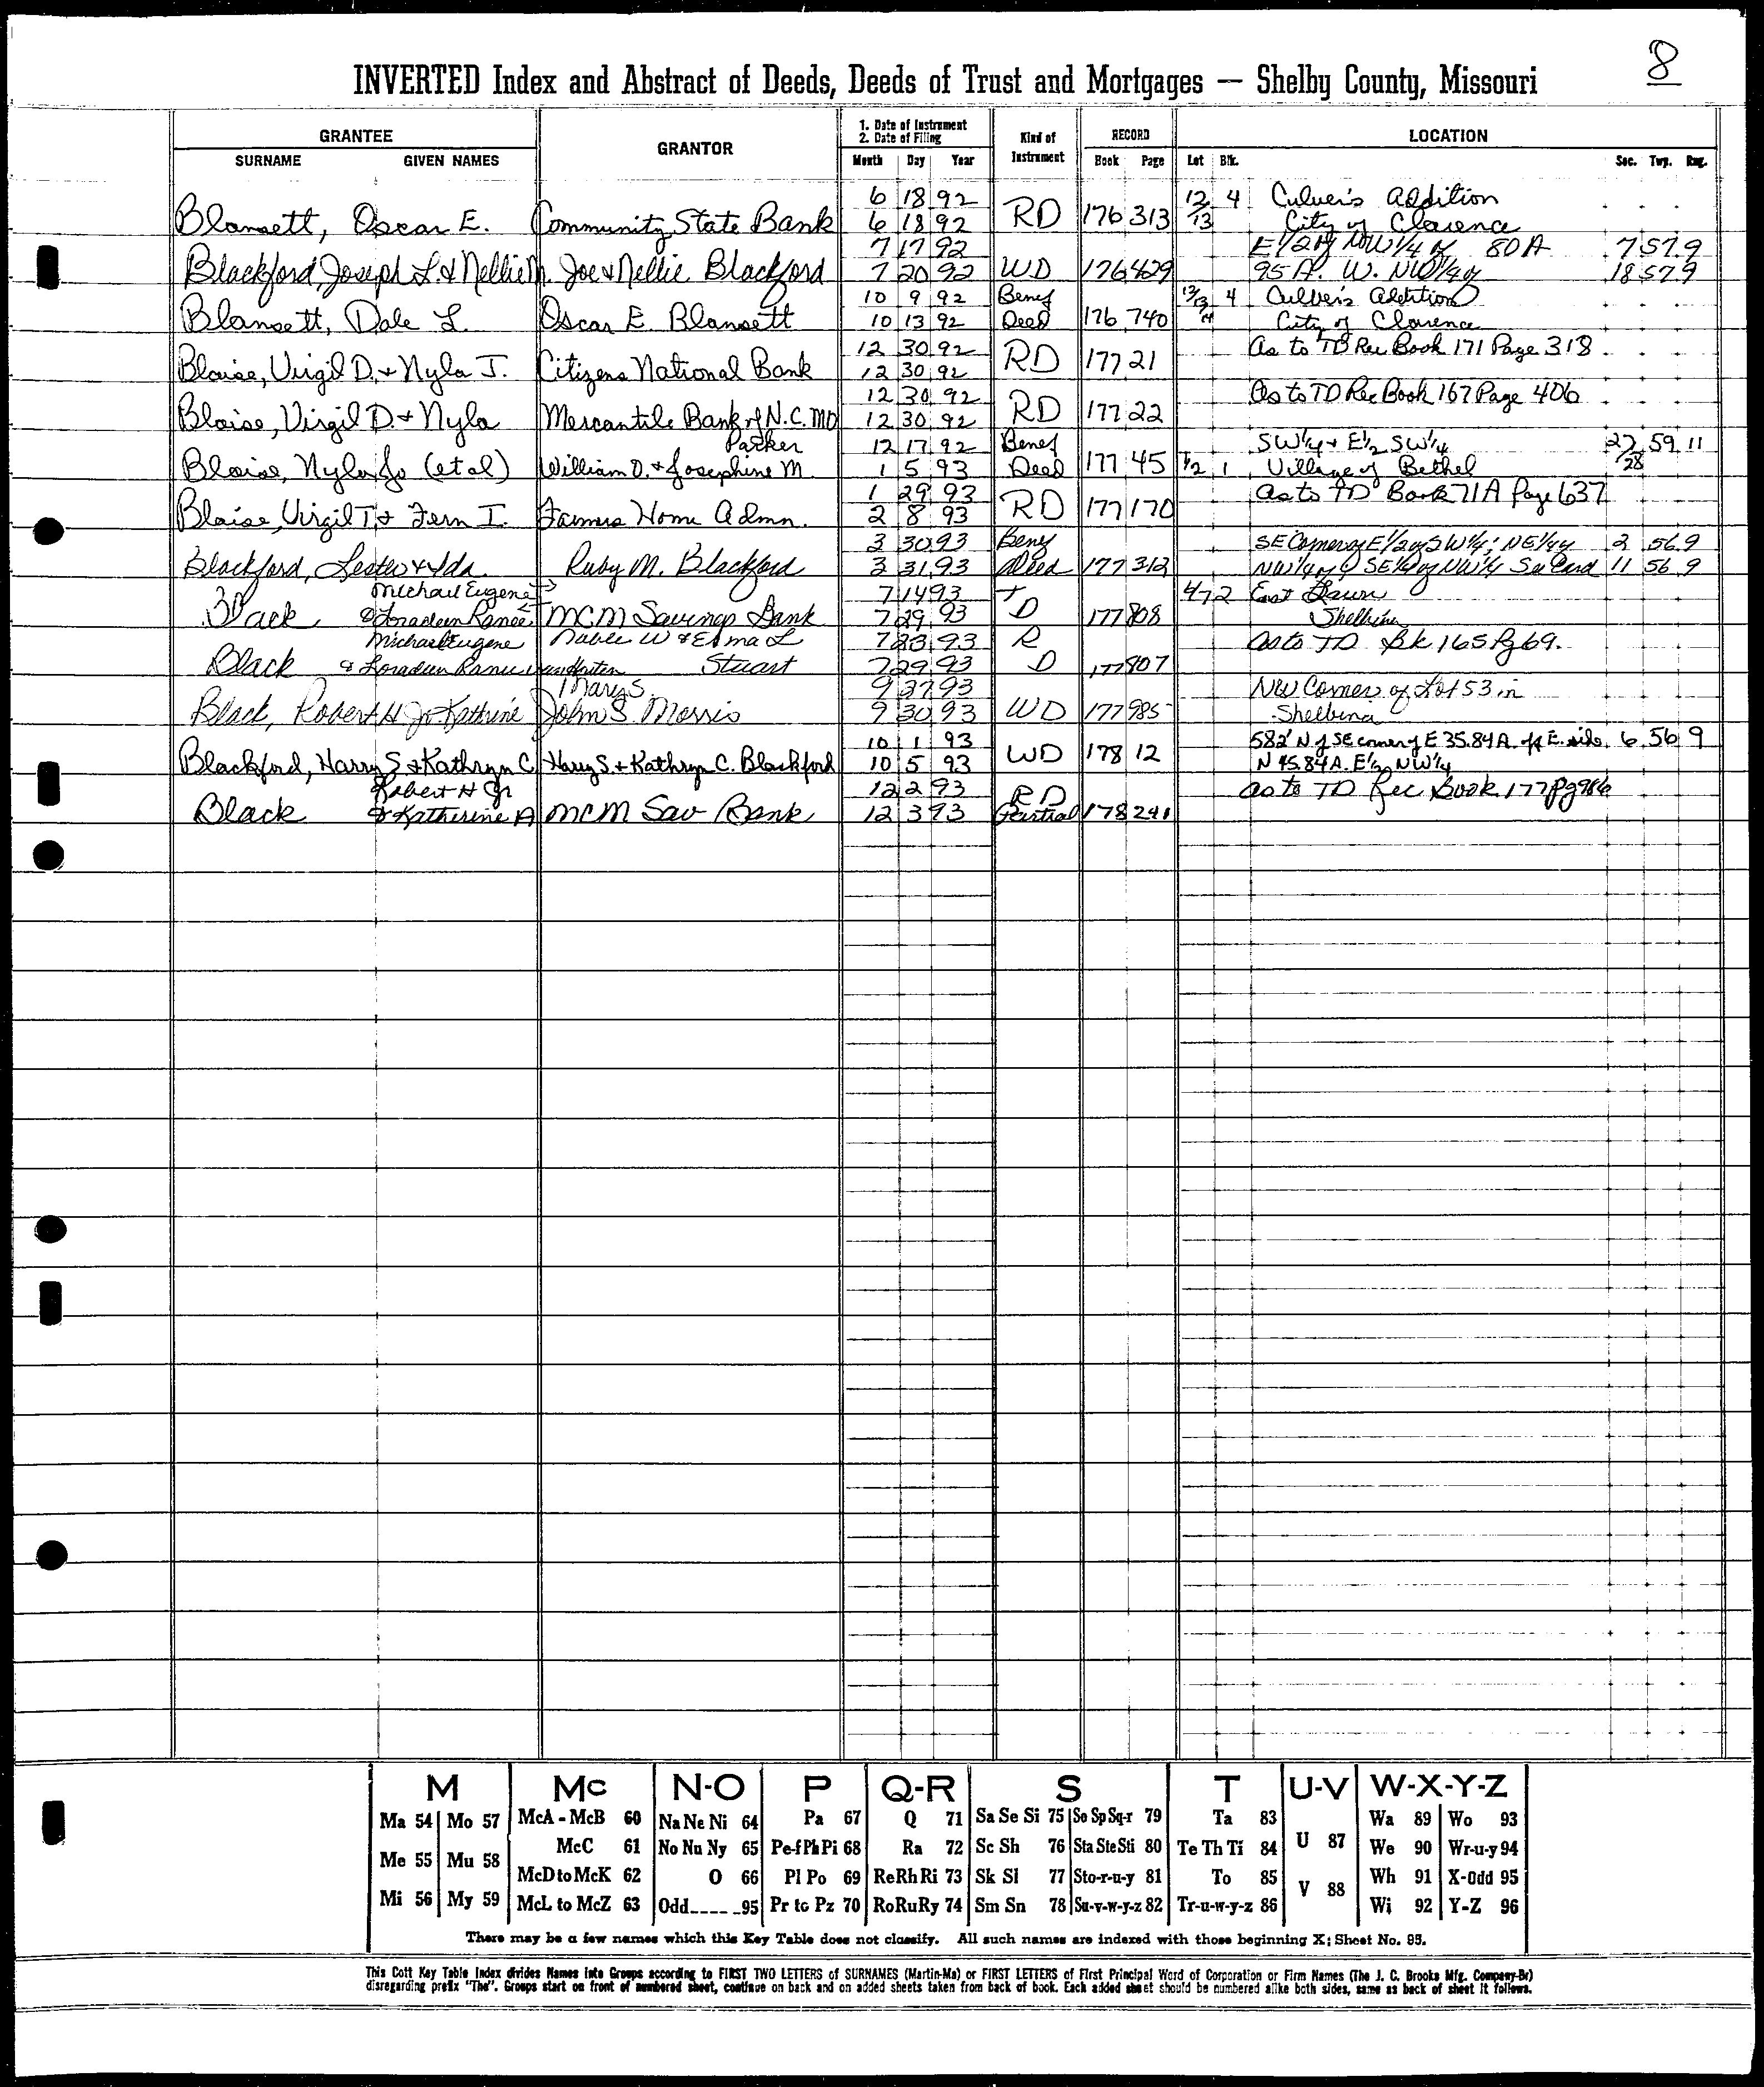 8
INVERTED Index and Abstract of Deeds, Deeds of Trust and Mortgages — Shelby County, Missouri
GRANTEE
SURNAME GIVEN NAMES
GRANTOR
1. Date of Instrument
2. Date of Filing
Month Day Year
Kind of Instrument
RECORD
Book Page
LOCATION
Lot Blk. Sec. Twp. Rng.
6 18 92 12 4 Culver's Addition
Blansett, Oscar E. Community State Bank 6 18 92 RD 176 313 13 City of Clarence
7 17 92 E 1/2 of NW 1/4 of 80 A 7 57 9
Blackford, Joseph L. & Nellie M. Joe & Nellie Blackford 7 20 92 WD 176 429 95 A. W. NW 1/4 of 18 57 9
10 9 92 Benef 12/13 4 Culver's Addition
Blansett, Dale L. Oscar E. Blansett 10 13 92 Deed 176 740 14 City of Clarence
12 30 92 As to TD Rec Book 171 Page 318
Blaise, Virgil D. & Nyla J. Citizens National Bank 12 30 92 RD 177 21
12 30 92 As to TD Rec Book 167 Page 406
Blaise, Virgil D. & Nyla Mercantile Bank of N.C. MO 12 30 92 RD 177 22
Parker 12 17 92 Benef SW 1/4 & E 1/2 SW 1/4 27 59 11
Blaise, Nyla Jo (et al) William O. & Josephine M. 1 5 93 Deed 177 45 1/2 1 Village of Bethel 28
1 29 93 As to TD Book 71A Page 637
Blaise, Virgil T. & Fern I. Farmers Home Admn. 2 8 93 RD 177 170
3 30 93 Benef SE Corner of E 1/2 of SW 1/4; NE 1/4 of 2 56 9
Blackford, Lester & Ida Ruby M. Blackford 3 31 93 Deed 177 312 NW 1/4 of & SE 1/4 of NW 1/4 See Card 11 56 9
Michael Eugene 7 14 93 T 4 72 East Lawn
Black & Loradeen Ranee MCM Savings Bank 7 29 93 D 177 808 Shelbina
Michael Eugene W & Erma L 7 23 93 R As to TD Bk 165 Pg 69.
Black & Loradeen Ranee Stuart 7 29 93 D 177 807
Mary S. 9 27 93 NW Corner of Lot 53 in
Black, Robert H Jr & Kathrine John S. Morris 9 30 93 WD 177 985 Shelbina
10 1 93 582' N of SE corner of E 35.84 A. off E. side 6 56 9
Blackford, Harry S. & Kathryn C. Harry S. & Kathryn C. Blackford 10 5 93 WD 178 12 N 45.84 A. E 1/2 NW 1/4
Robert H Jr 12 2 93 RD As to TD Rec Book 177 Pg 986
Black & Katherine A MCM Sav Bank 12 3 93 Partial 178 241
M Mc N-O P Q-R S T U-V W-X-Y-Z
Ma 54 Mo 57 McA - McB 60 Na Ne Ni 64 Pa 67 Q 71 Sa Se Si 75 So Sp Sq-r 79 Ta 83 U 87 Wa 89 Wo 93
Me 55 Mu 58 McC 61 No Nu Ny 65 Pe-f Ph Pi 68 Ra 72 Sc Sh 76 Sta Ste Sti 80 Te Th Ti 84 We 90 Wr-u-y 94
McD to McK 62 O 66 Pl Po 69 Re Rh Ri 73 Sk Sl 77 Sto-r-u-y 81 To 85 V 88 Wh 91 X-Odd 95
Mi 56 My 59 McL to McZ 63 Odd 95 Pr to Pz 70 Ro Ru Ry 74 Sm Sn 78 Su-v-w-y-z 82 Tr-u-w-y-z 86 Wi 92 Y-Z 96
There may be a few names which this Key Table does not classify. All such names are indexed with those beginning X; Sheet No. 95.
This Cott Key Table Index divides Names into Groups according to FIRST TWO LETTERS of SURNAMES (Martin-Ma) or FIRST LETTERS of First Principal Word of Corporation or Firm Names (The J. C. Brooks Mfg. Company-Br)
disregarding prefix "The". Groups start on front of numbered sheet, continue on back and on added sheets taken from back of book. Each added sheet should be numbered alike both sides, same as back of sheet it follows.